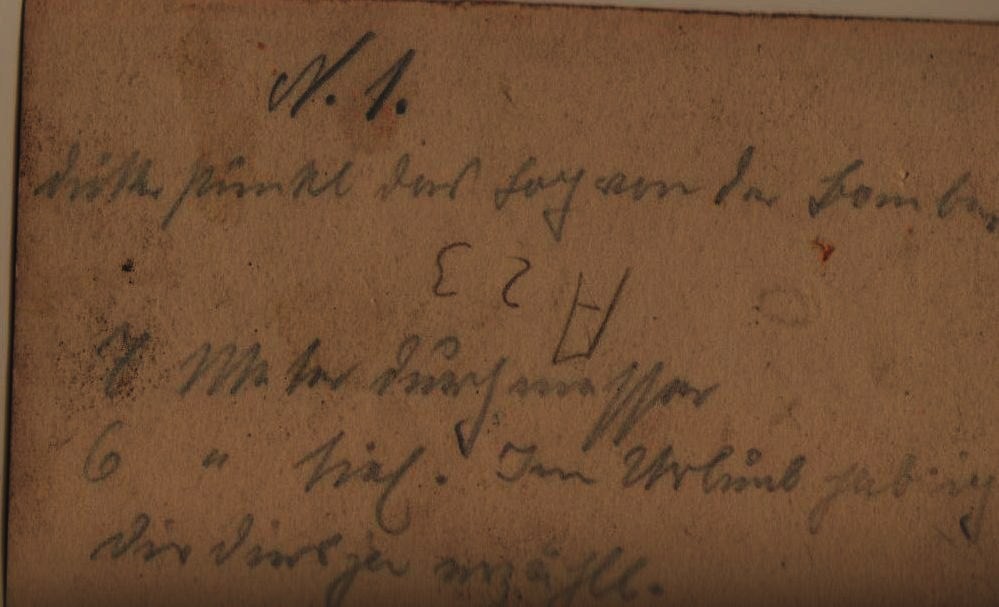 N. 1.
Punkt das Loch von der Bombe
A 23
7 Meter durchmesser
6 " tief. Im Urlaub hab ich
dir dies ja erzählt.